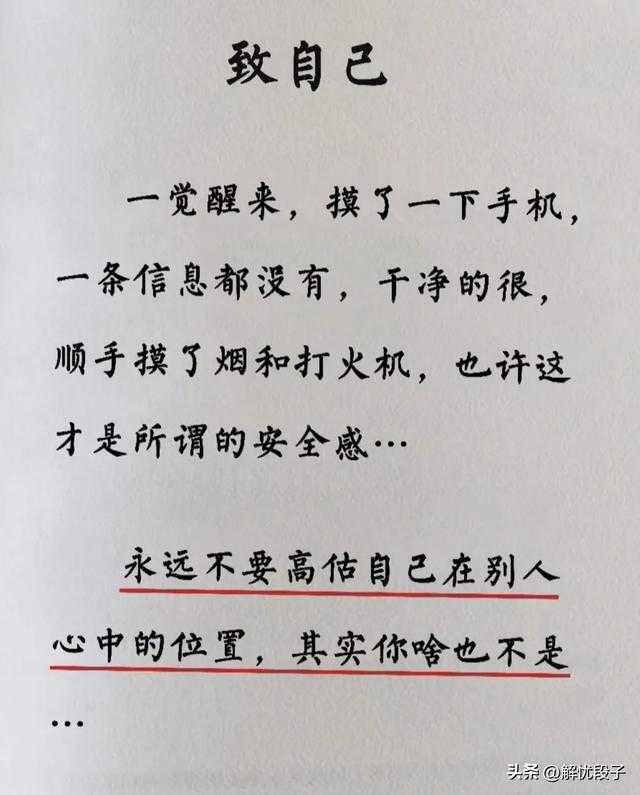 致自己
一觉醒来，摸了一下手机，
一条信息都没有，干净的很，
顺手摸了烟和打火机，也许这
才是所谓的安全感…
永远不要高估自己在别人
心中的位置，其实你啥也不是
…
头条 @解忧段子